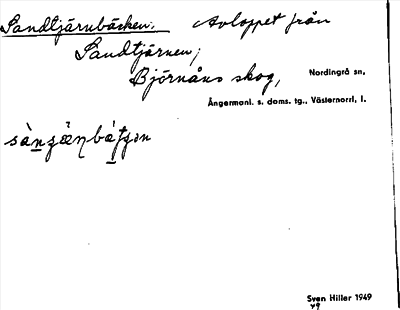 Sandtjärnbäcken. Avloppet från
Sandtjärnen;
Björnåns skog,
Nordingrå sn,
Ångermanl. s. doms. tg., Västernorrl. l.
Sven Hiller 1949